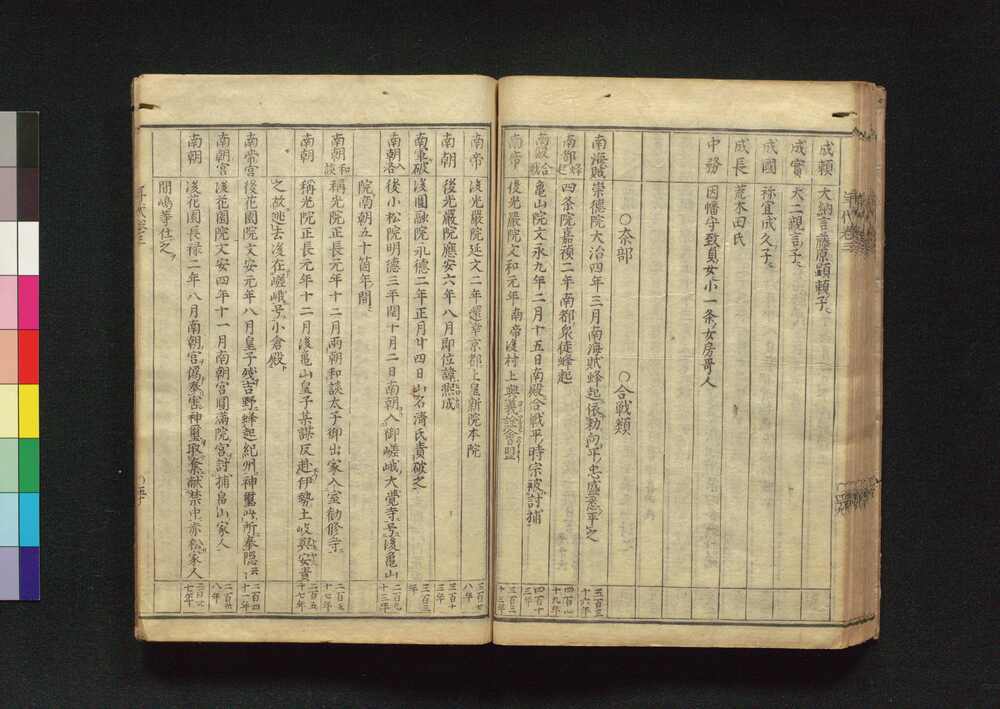 成頼 大納言藤原顕頼子
成實 大二親言子
成國 祢宜成久子
成長 荒木田氏
中務 因幡守致貞女小一条女房哥人
○奈部 ○合戦類
南海賊 崇徳院大治四年三月南海賊蜂起依勅向平忠盛悉平之
南都蜂起 四条院嘉禎二年南都衆徒蜂起
南殿合戦 亀山院文永九年二月十五日南殿合戦平時宗被討捕
南帝 後光厳院文和元年南帝後村上與義詮會盟
南帝 後光厳院延文二年還幸京都上皇新院本院
南朝 後光厳院應安六年八月即位諱熙成
南軍破 後圓融院永德二年正月廿四日山名濟氏責破之
南朝入洛 後小松院明徳三年閏十月二日南朝入御嵯峨大覚寺号後亀山
院南朝五十箇年間
南朝和談 稱光院正長元年十二月両朝和談太子御出家入室勧修寺
南朝 稱光院正長元年十二月後亀山皇子某謀反赴伊勢土岐與安責
之故逃去後在嵯峨号小倉殿
南帝宮 後花園院文安元年八月皇子残吉野蜂起紀州神璽此所奉隠
南朝宮 後花園院文安四年十一月南朝宮圓満院宮討捕畠山家人
南朝 後花園長禄二年八月南朝宮偽奉害神璽取奪献禁中赤松家人
間嶋等仕之